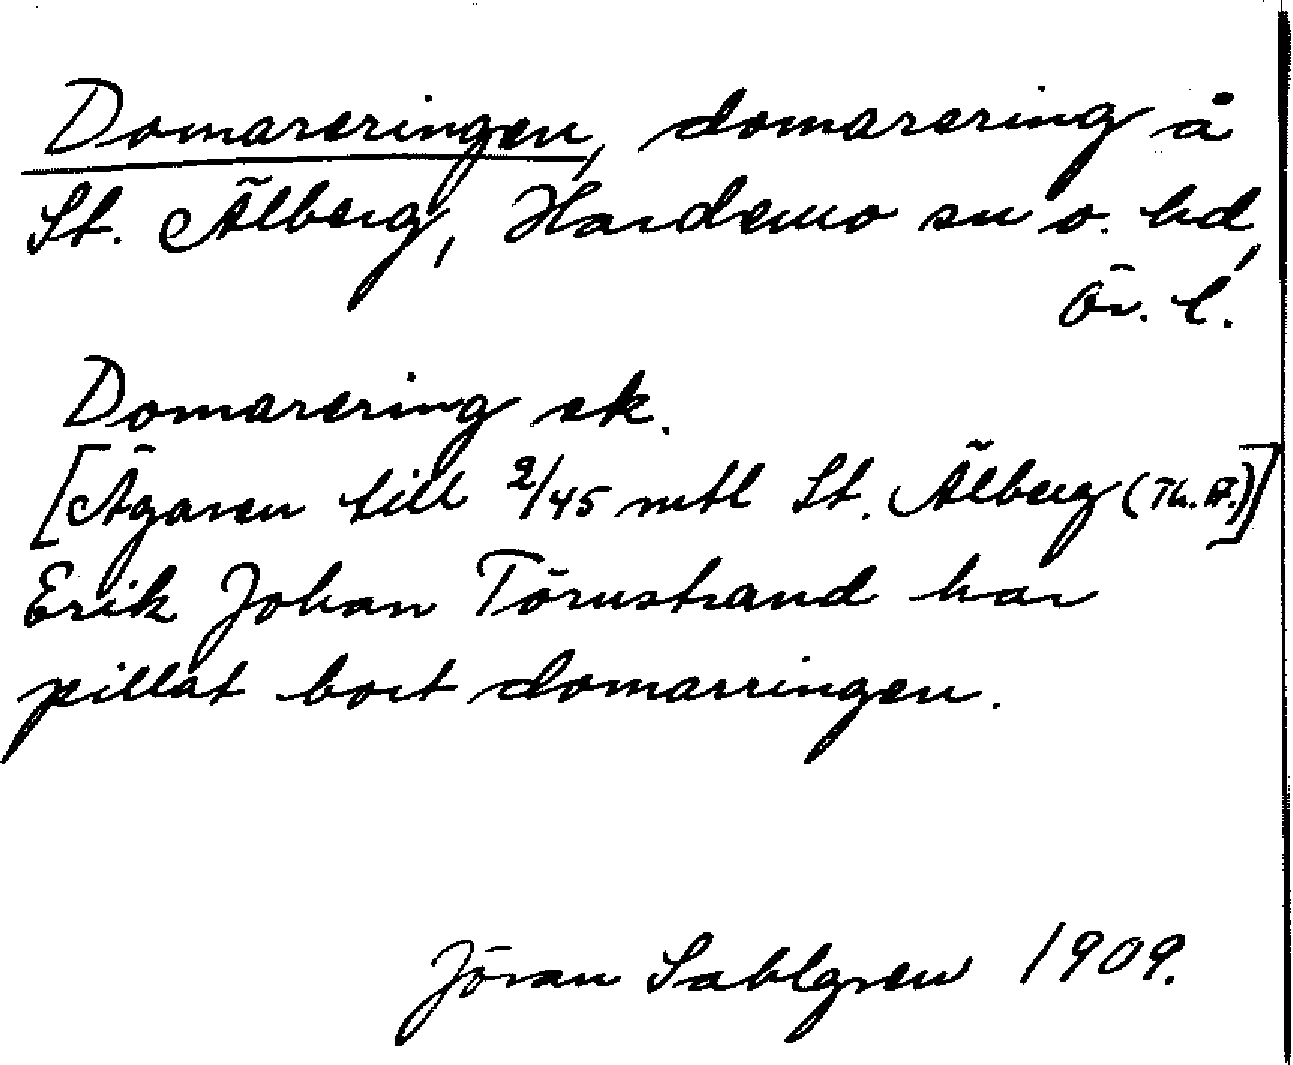 Domareringen, domarering å
St. Älberg, Hardemo sn o. hd,
Ör. l.
Domarering sk.
[Ägaren till 2/45 mtl St. Älberg (Th. A.)]
Erik Johan Törnstrand har
pillat bort domarringen.
Jöran Sahlgren 1909.